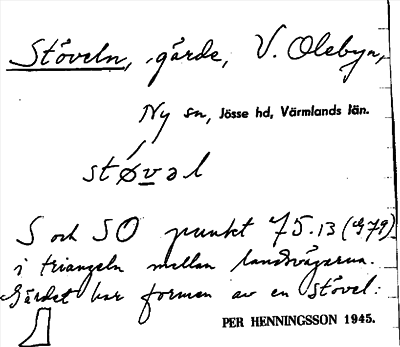 Stöveln, gärde, V. Olebyn,
Ny sn, Jösse hd, Värmlands län.
støvəl
S och SO punkt 75.13 (G79)
i triangeln mellan landsvägarna.
Gärdet har formen av en stövel:
PER HENNINGSSON 1945.